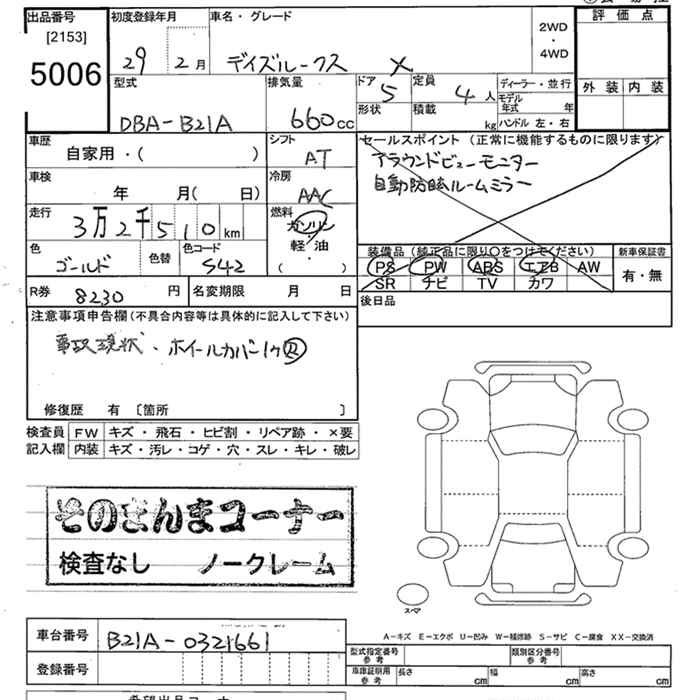 出品番号
[2153]
5006
初度登録年月
29 2月
車名・グレード
デイズルークス X
2WD
・
4WD
評価点
外装 内装
型式
DBA-B21A
排気量
660cc
ドア
5
形状
定員
4人
積載
kg
ディーラー・並行
モデル年式 年
ハンドル 左・右
車歴
自家用・( )
シフト
AT
車検
年 月( 日)
冷房
AAC
走行
3万2千510km
燃料
ガソリン
・
軽油
・
( )
色
ゴールド
色替
色コード
S42
R券
8230 円
名変期限 月 日
セールスポイント (正常に機能するものに限ります)
アラウンドビューモニター
自動防眩ルームミラー
装備品 (純正品に限り○をつけてください)
PS PW ABS エアB AW
SR ナビ TV カワ
新車保証書
有・無
後日品
注意事項申告欄(不具合内容等は具体的に記入して下さい)
事故現状・ホイールカバー1ケ欠
修復歴 有 〔箇所 〕
検査員記入欄
FW キズ・飛石・ヒビ割・リペア跡・×要
内装 キズ・汚レ・コゲ・穴・スレ・キレ・破レ
そのまんまコーナー
検査なし ノークレーム
スペア
A-キズ E-エクボ U-凹み W-補修跡 S-サビ C-腐食 XX-交換済
車台番号
B21A-0321661
登録番号
型式指定番号
参考
類別区分番号
参考
車庫証明用
参考
長さ cm
幅 cm
高さ cm